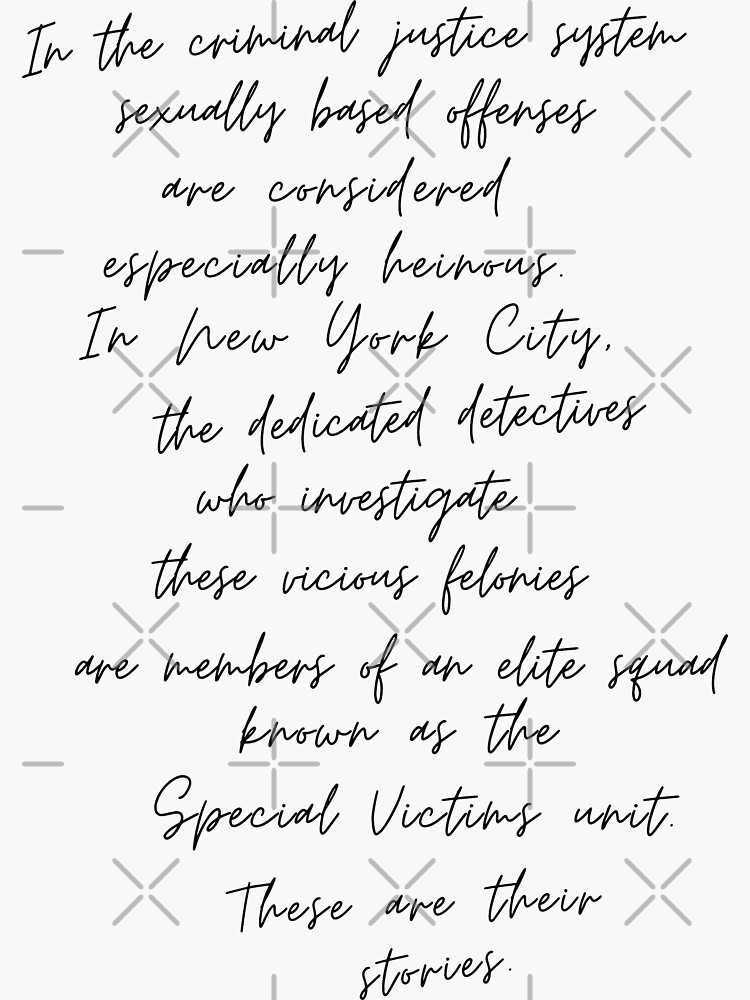 In the criminal justice system
sexually based offenses
are considered
especially heinous.
In New York City,
the dedicated detectives
who investigate
these vicious felonies
are members of an elite squad
known as the
Special Victims unit.
These are their
stories.